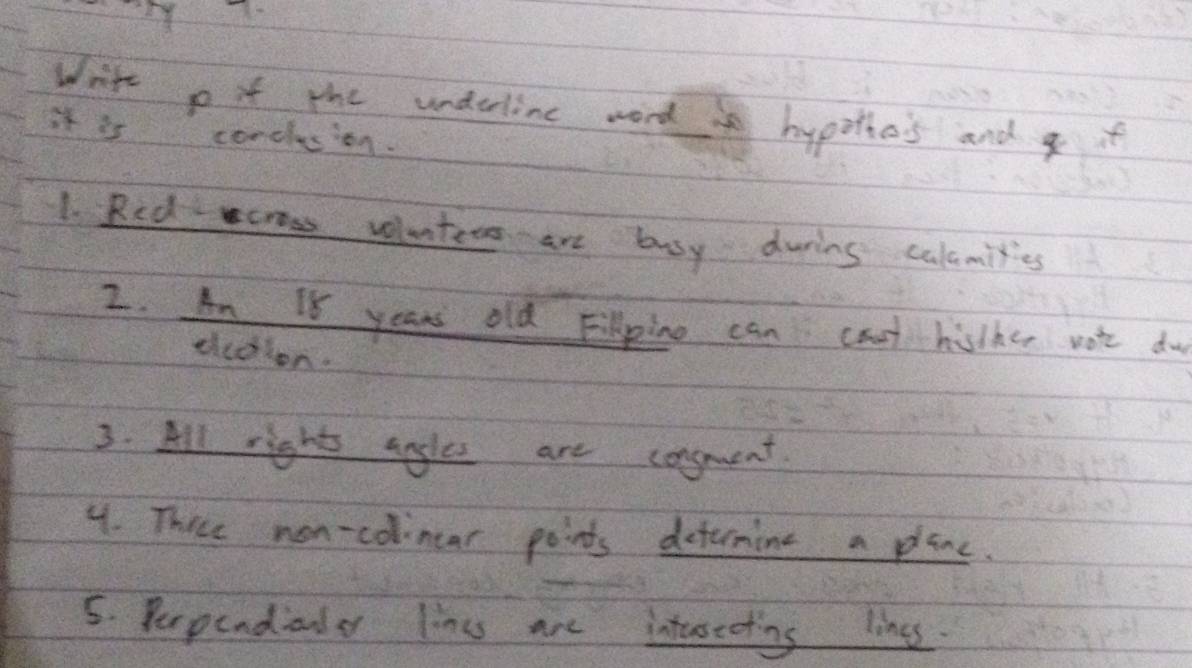 4.
Write p if the underline word is hypothesis and q if
it is conclusion.
1. Red cross volunteers are busy during calamities
2. An 18 years old Fillipino can cast his/her vote dur
election.
3. All rights angles are congruent.
4. Three non-colinear points determine a plane.
5. Perpendicular lines are intersecting lines.